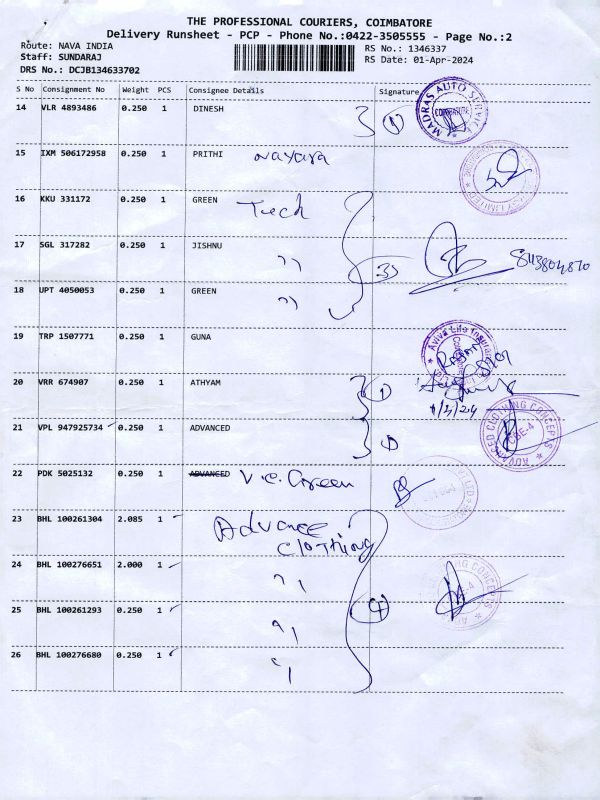 THE PROFESSIONAL COURIERS, COIMBATORE
Delivery Runsheet - PCP - Phone No.:0422-3505555 - Page No.:2
Route: NAVA INDIA
RS No.: 1346337
Staff: SUNDARAJ
RS Date: 01-Apr-2024
DRS No.: DCJB134633702
S No Consignment No Weight PCS Consignee Details Signature
14 VLR 4893486 0.250 1 DINESH 1 MADRAS AUTO SERVICE
15 IXM 506172958 0.250 1 PRITHI Nayara
16 KKU 331172 0.250 1 GREEN Tech
17 SGL 317282 0.250 1 JISHNU ,, 3
18 UPT 4050053 0.250 1 GREEN ,,
19 TRP 1507771 0.250 1 GUNA Aviva Life Insurance
20 VRR 674907 0.250 1 ATHYAM 1
21 VPL 947925734 0.250 1 ADVANCED 1 ADVANCED CLOTHING CONCEPTS CBE-4
22 PDK 5025132 0.250 1 ADVANCED V.c. Green
23 BHL 100261304 2.085 1 Advance
Clothing
24 BHL 100276651 2.000 1 ,,
25 BHL 100261293 0.250 1 ,, 4
26 BHL 100276680 0.250 1 ,,